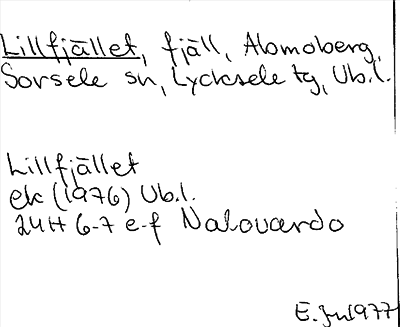 Lillfjället, fjäll, Abmoberg,
Sorsele sn, Lycksele tg, Vb.l.
Lillfjället
ek (1976) Vb.l.
24H 6-7 e-f Nalovardo
E. 1977